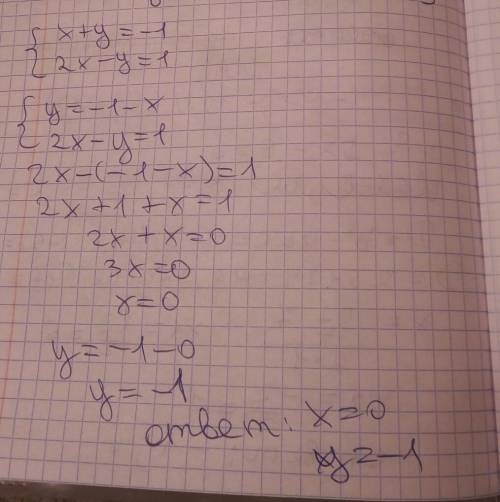 x+y=-1
2x-y=1
y=-1-x
2x-y=1
2x-(-1-x)=1
2x+1+x=1
2x+x=0
3x=0
x=0
y=-1-0
y=-1
ответ: x=0
y=-1